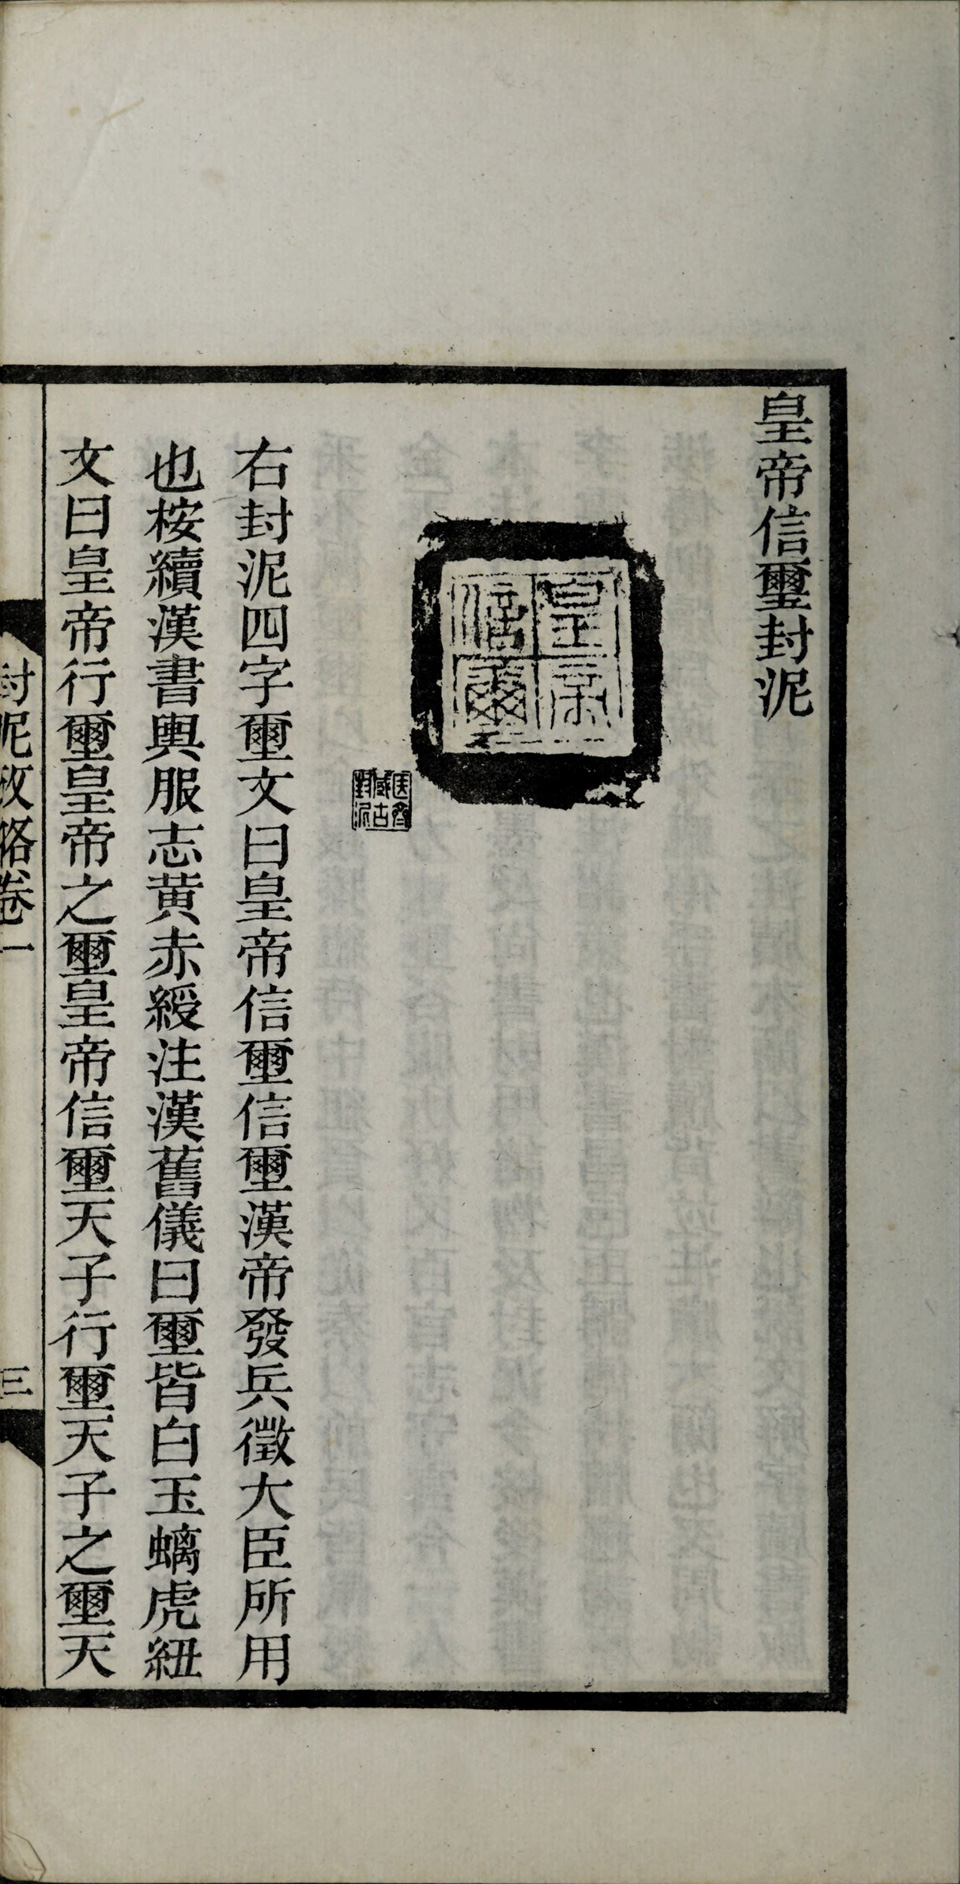 皇帝信璽封泥
皇帝
信璽
右封泥四字璽文曰皇帝信璽信璽漢帝發兵徵大臣所用
也桉續漢書輿服志黃赤綬注漢舊儀曰璽皆白玉螭虎紐
文曰皇帝行璽皇帝之璽皇帝信璽天子行璽天子之璽天
封泥攷略卷一
三